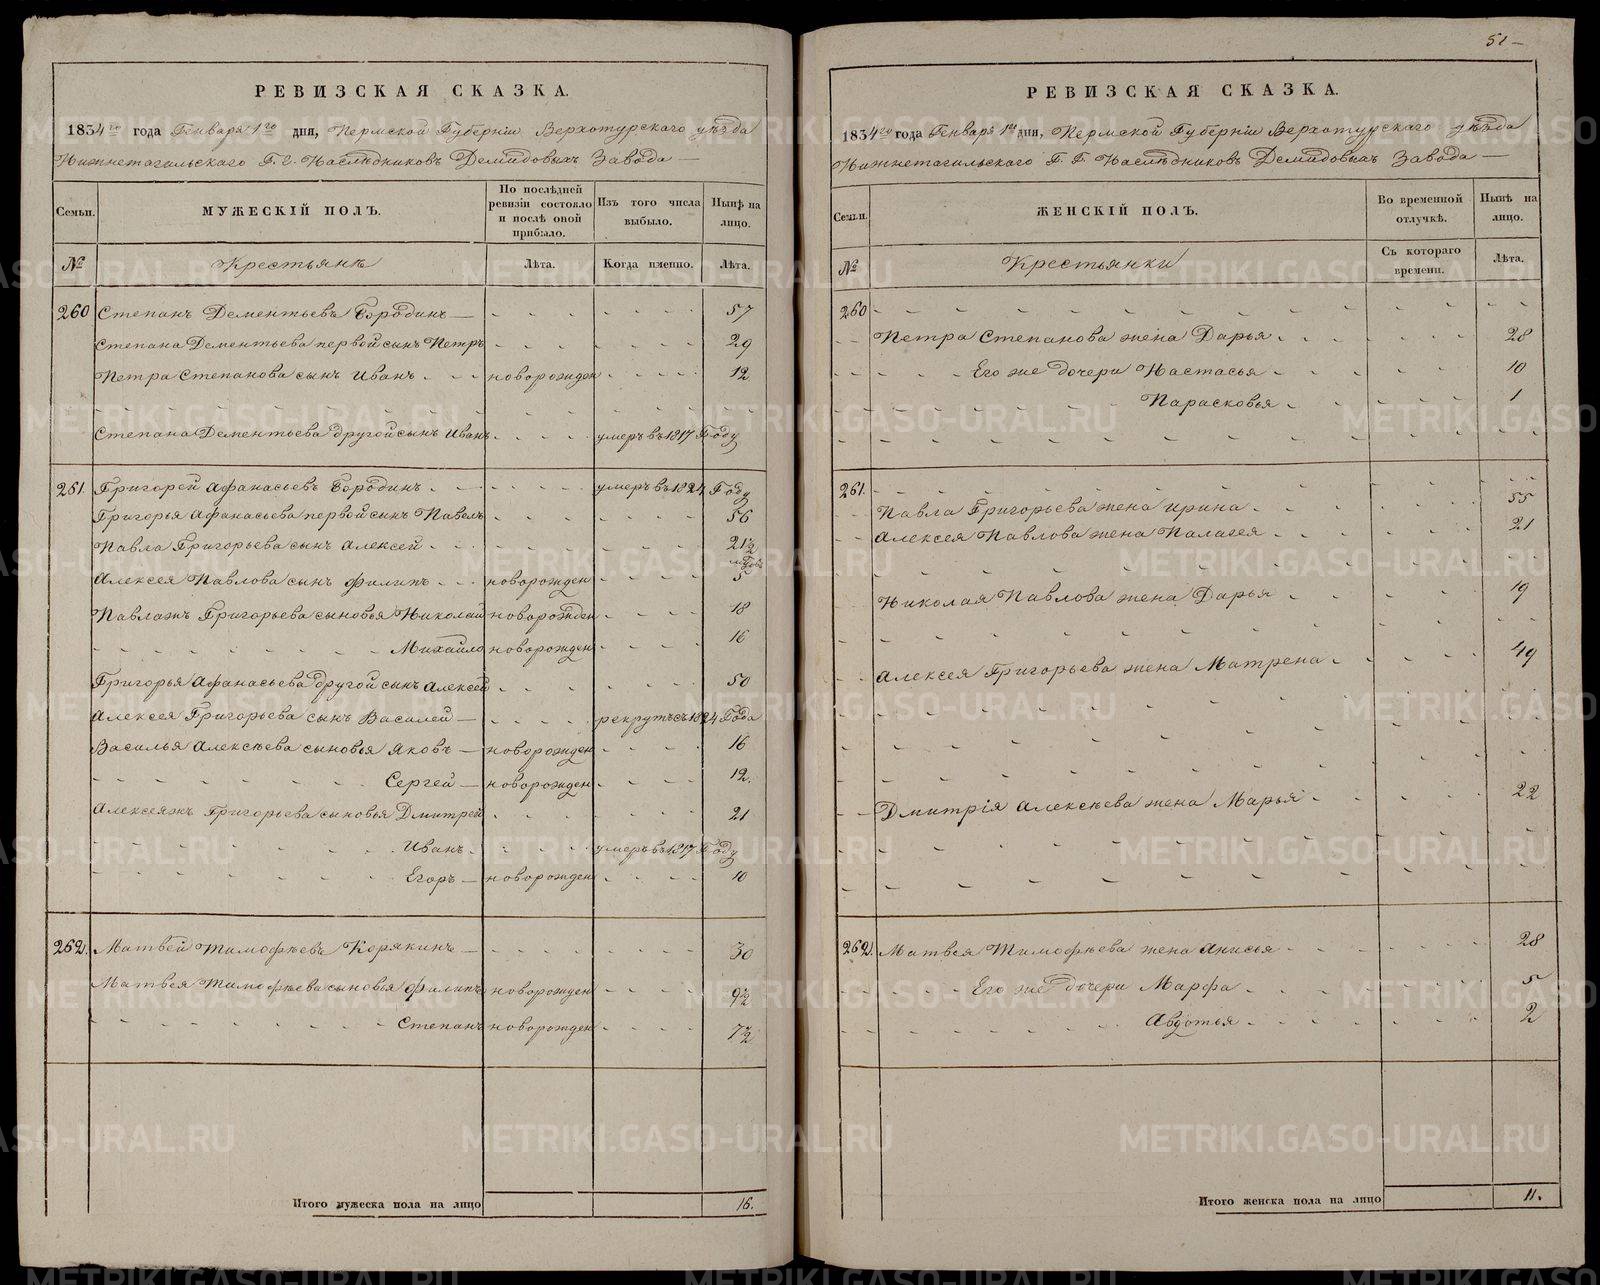 51
РЕВИЗСКАЯ СКАЗКА.
1834го года Генваря 1го дня, Пермской Губерніи Верхотурскаго уѣзда
Нижнетагильскаго Г. Г. Наслѣдниковъ Демидовыхъ Завода
Семьи. МУЖЕСКІЙ ПОЛЪ. По послѣдней ревизіи состояло и послѣ оной прибыло. Изъ того числа выбыло. Нынѣ на лицо.
№ Крестьянъ Лѣта. Когда именно. Лѣта.
260 Степанъ Дементьевъ Бородинъ 57
Степана Дементьева первой сынъ Петръ 29
Петра Степанова сынъ Иванъ новорожден 12
Степана Дементьева другой сынъ Иванъ умеръ въ 1817 Году
261. Григорей Афанасьевъ Бородинъ умеръ въ 1824 Году
Григорья Афанасьева первой сынъ Павелъ 56
Павла Григорьева сынъ Алексей 21 1/2
Алексея Павлова сынъ Филипъ новорожден 5
Павлажъ Григорьева сыновья Николай новорожден 18
Михайло новорожден 16
Григорья Афанасьева другой сынъ Алексей 50
Алексея Григорьева сынъ Василей рекрутъ съ 1824 Года
Василья Алексѣева сыновья Яковъ новорожден 16
Сергей новорожден 12.
Алексеяжъ Григорьева сыновья Дмитрей 21
Иванъ умеръ въ 1817 Году
Егоръ новорожден 10
262. Матвей Тимофѣевъ Корякинъ 30
Матвея Тимофѣева сыновья Филипъ новорожден 9 1/2
Степанъ новорожден 7 1/2
Итого мужеска пола на лицо 16.
РЕВИЗСКАЯ СКАЗКА.
1834го года Генваря 1го дня, Пермской Губерніи Верхотурскаго уѣзда
Нижнетагильскаго Г. Г. Наслѣдниковъ Демидовыхъ Завода
Семьи. ЖЕНСКІЙ ПОЛЪ. Во временной отлучкѣ. Нынѣ на лицо.
№ Крестьянки Съ котораго времени. Лѣта.
260
Петра Степанова жена Дарья 28
Его же дочери Настасья 10
Парасковья 1
261.
Павла Григорьева жена Ирина 55
Алексея Павлова жена Палагея 21
Николая Павлова жена Дарья 19
Алексея Григорьева жена Матрена 49
Дмитрія Алексѣева жена Марья 22
262. Матвея Тимофѣева жена Анисья 28
Его же дочери Марфа 5
Авдотья 2
Итого женска пола на лицо 11.
METRIKI.GASO-URAL.RU